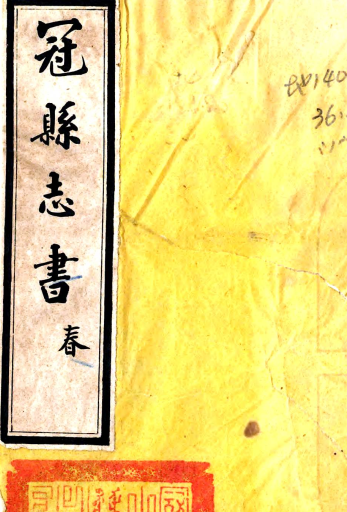 冠縣志書
春
140
36